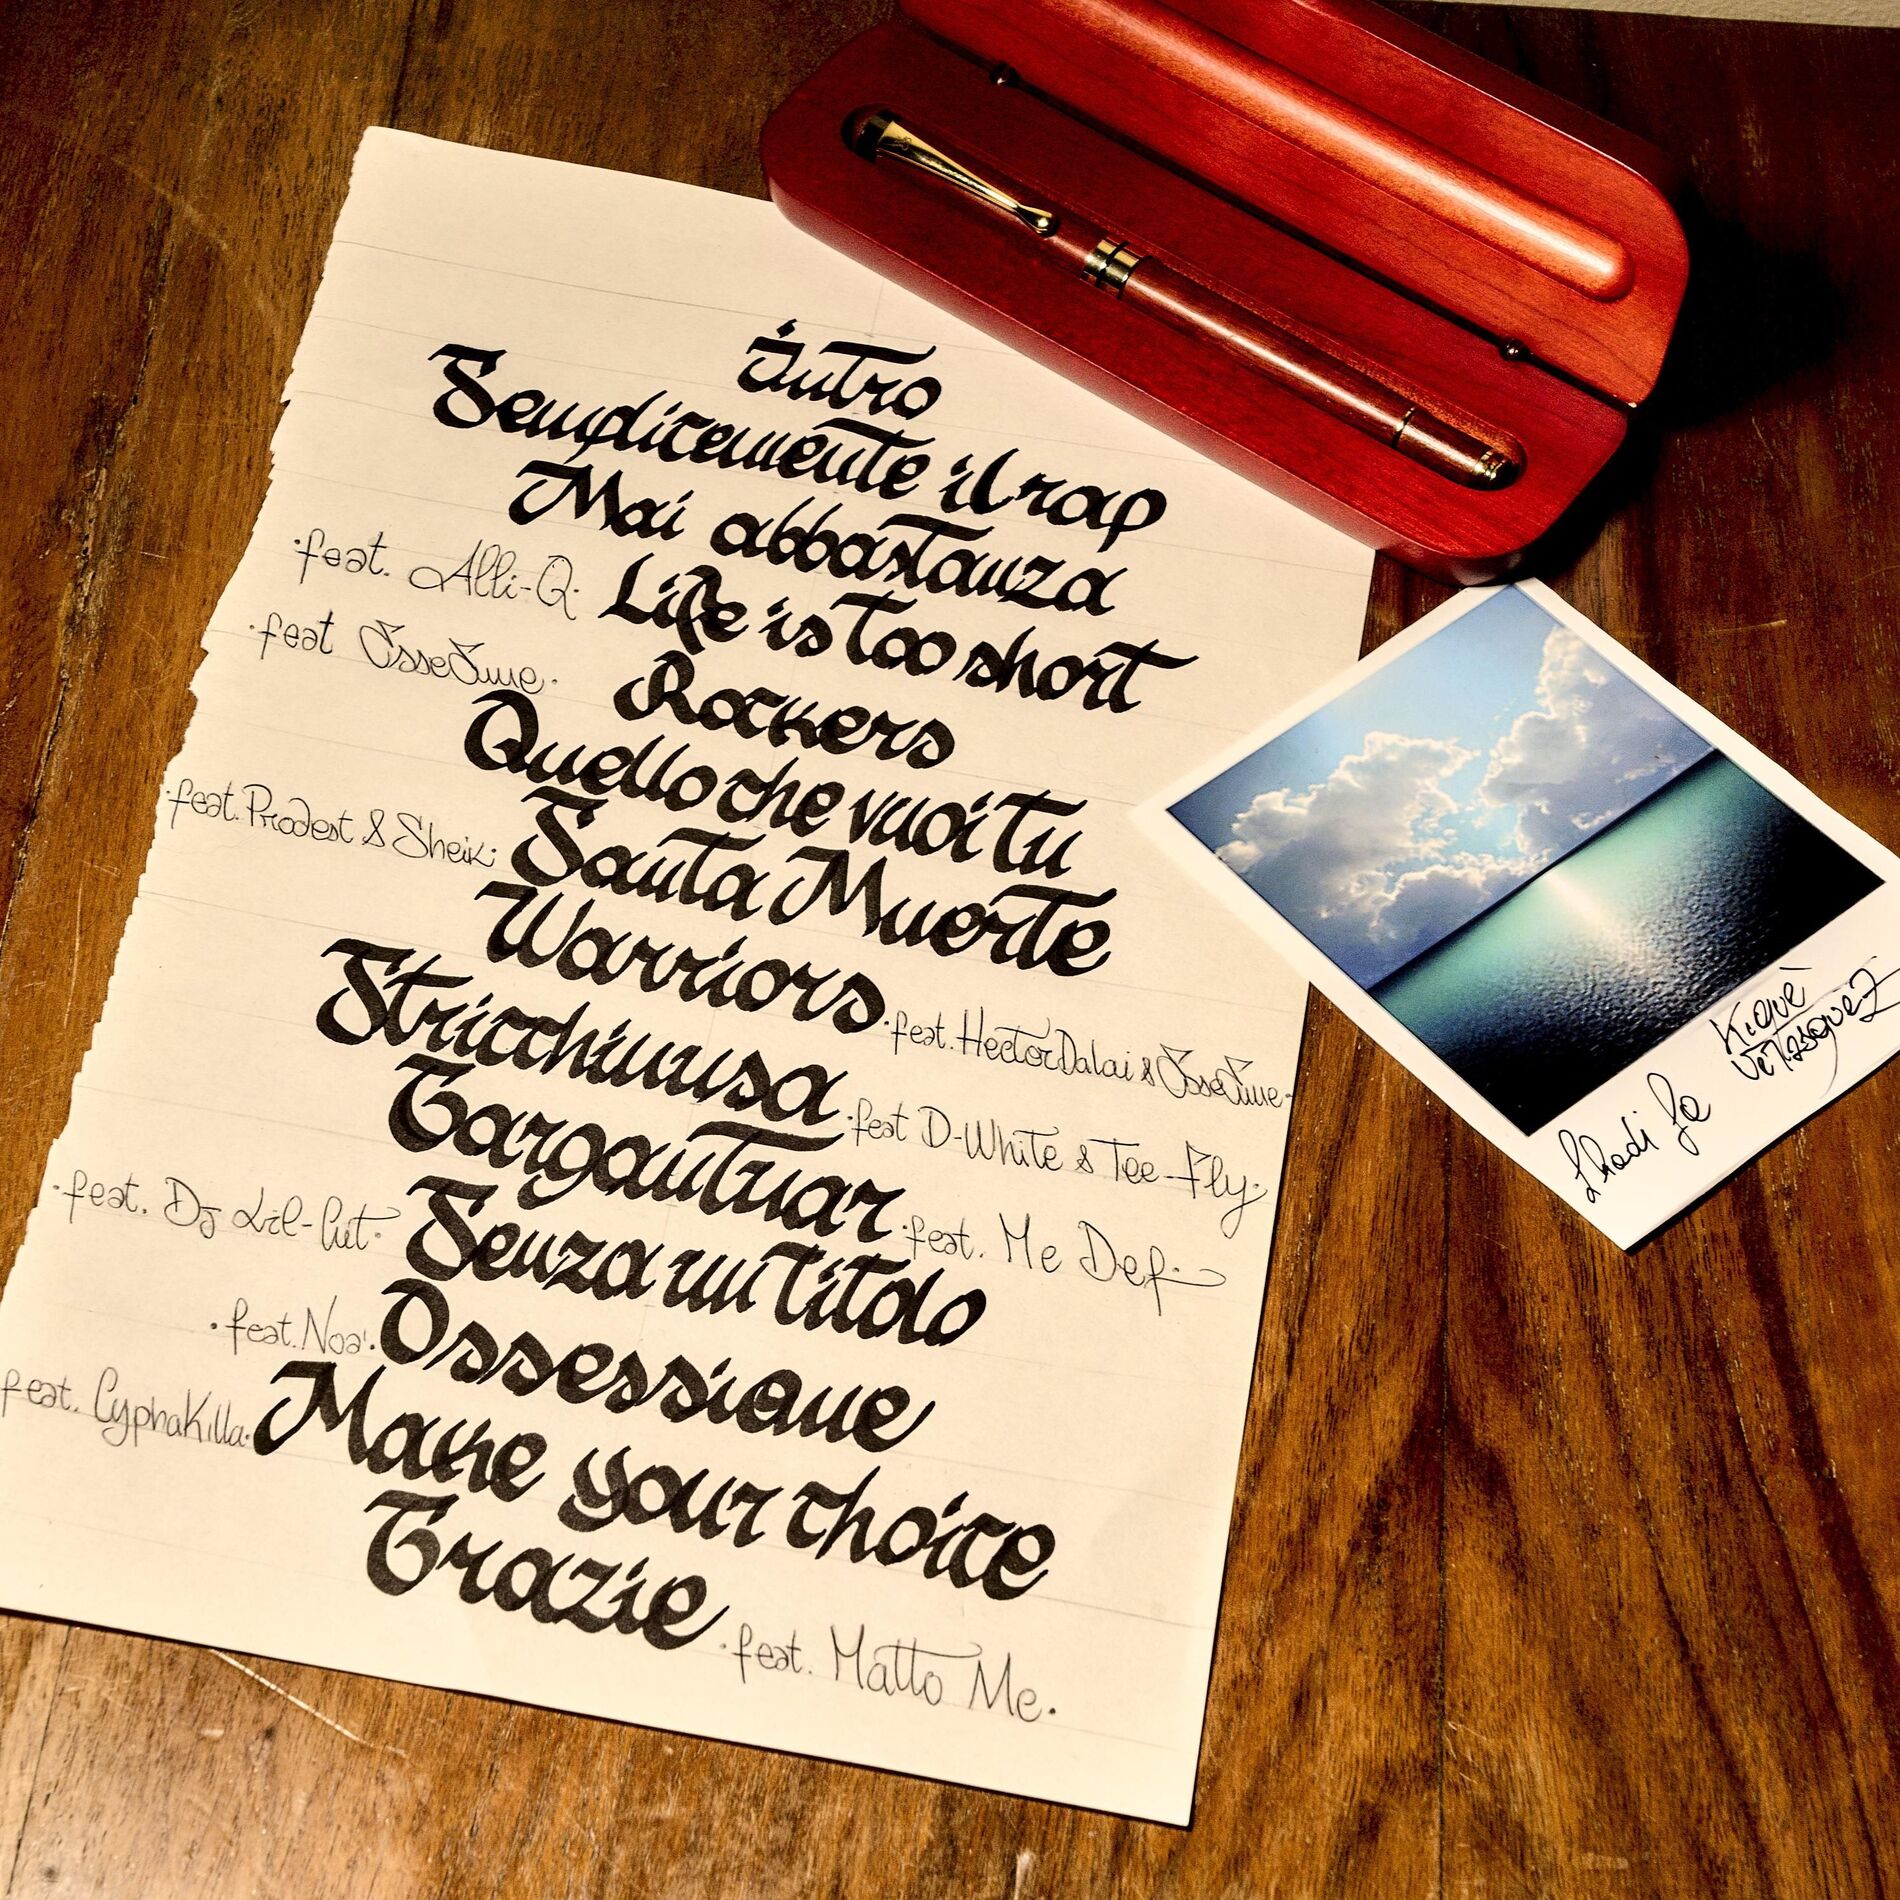 Intro
Semplicemente il rap
Mai abbastanza
·feat. Alli-Q· Life is too short
·feat EsseEmme· Rockers
Quello che vuoi tu
·feat. Prodest & Sheik· Santa Muerte
Warriors ·feat. Hector Dalai & EsseEmme·
Stricchinusa ·feat D-White & Tee-Fly·
Gargantuar ·feat. Me Def·
·feat. Dj Lil-Cut· Senza un titolo
·feat. Noa'· Ossessione
feat. CyphaKilla· Make your choice
Grazie ·feat. Matto Me·
Kiquè
Velasquez